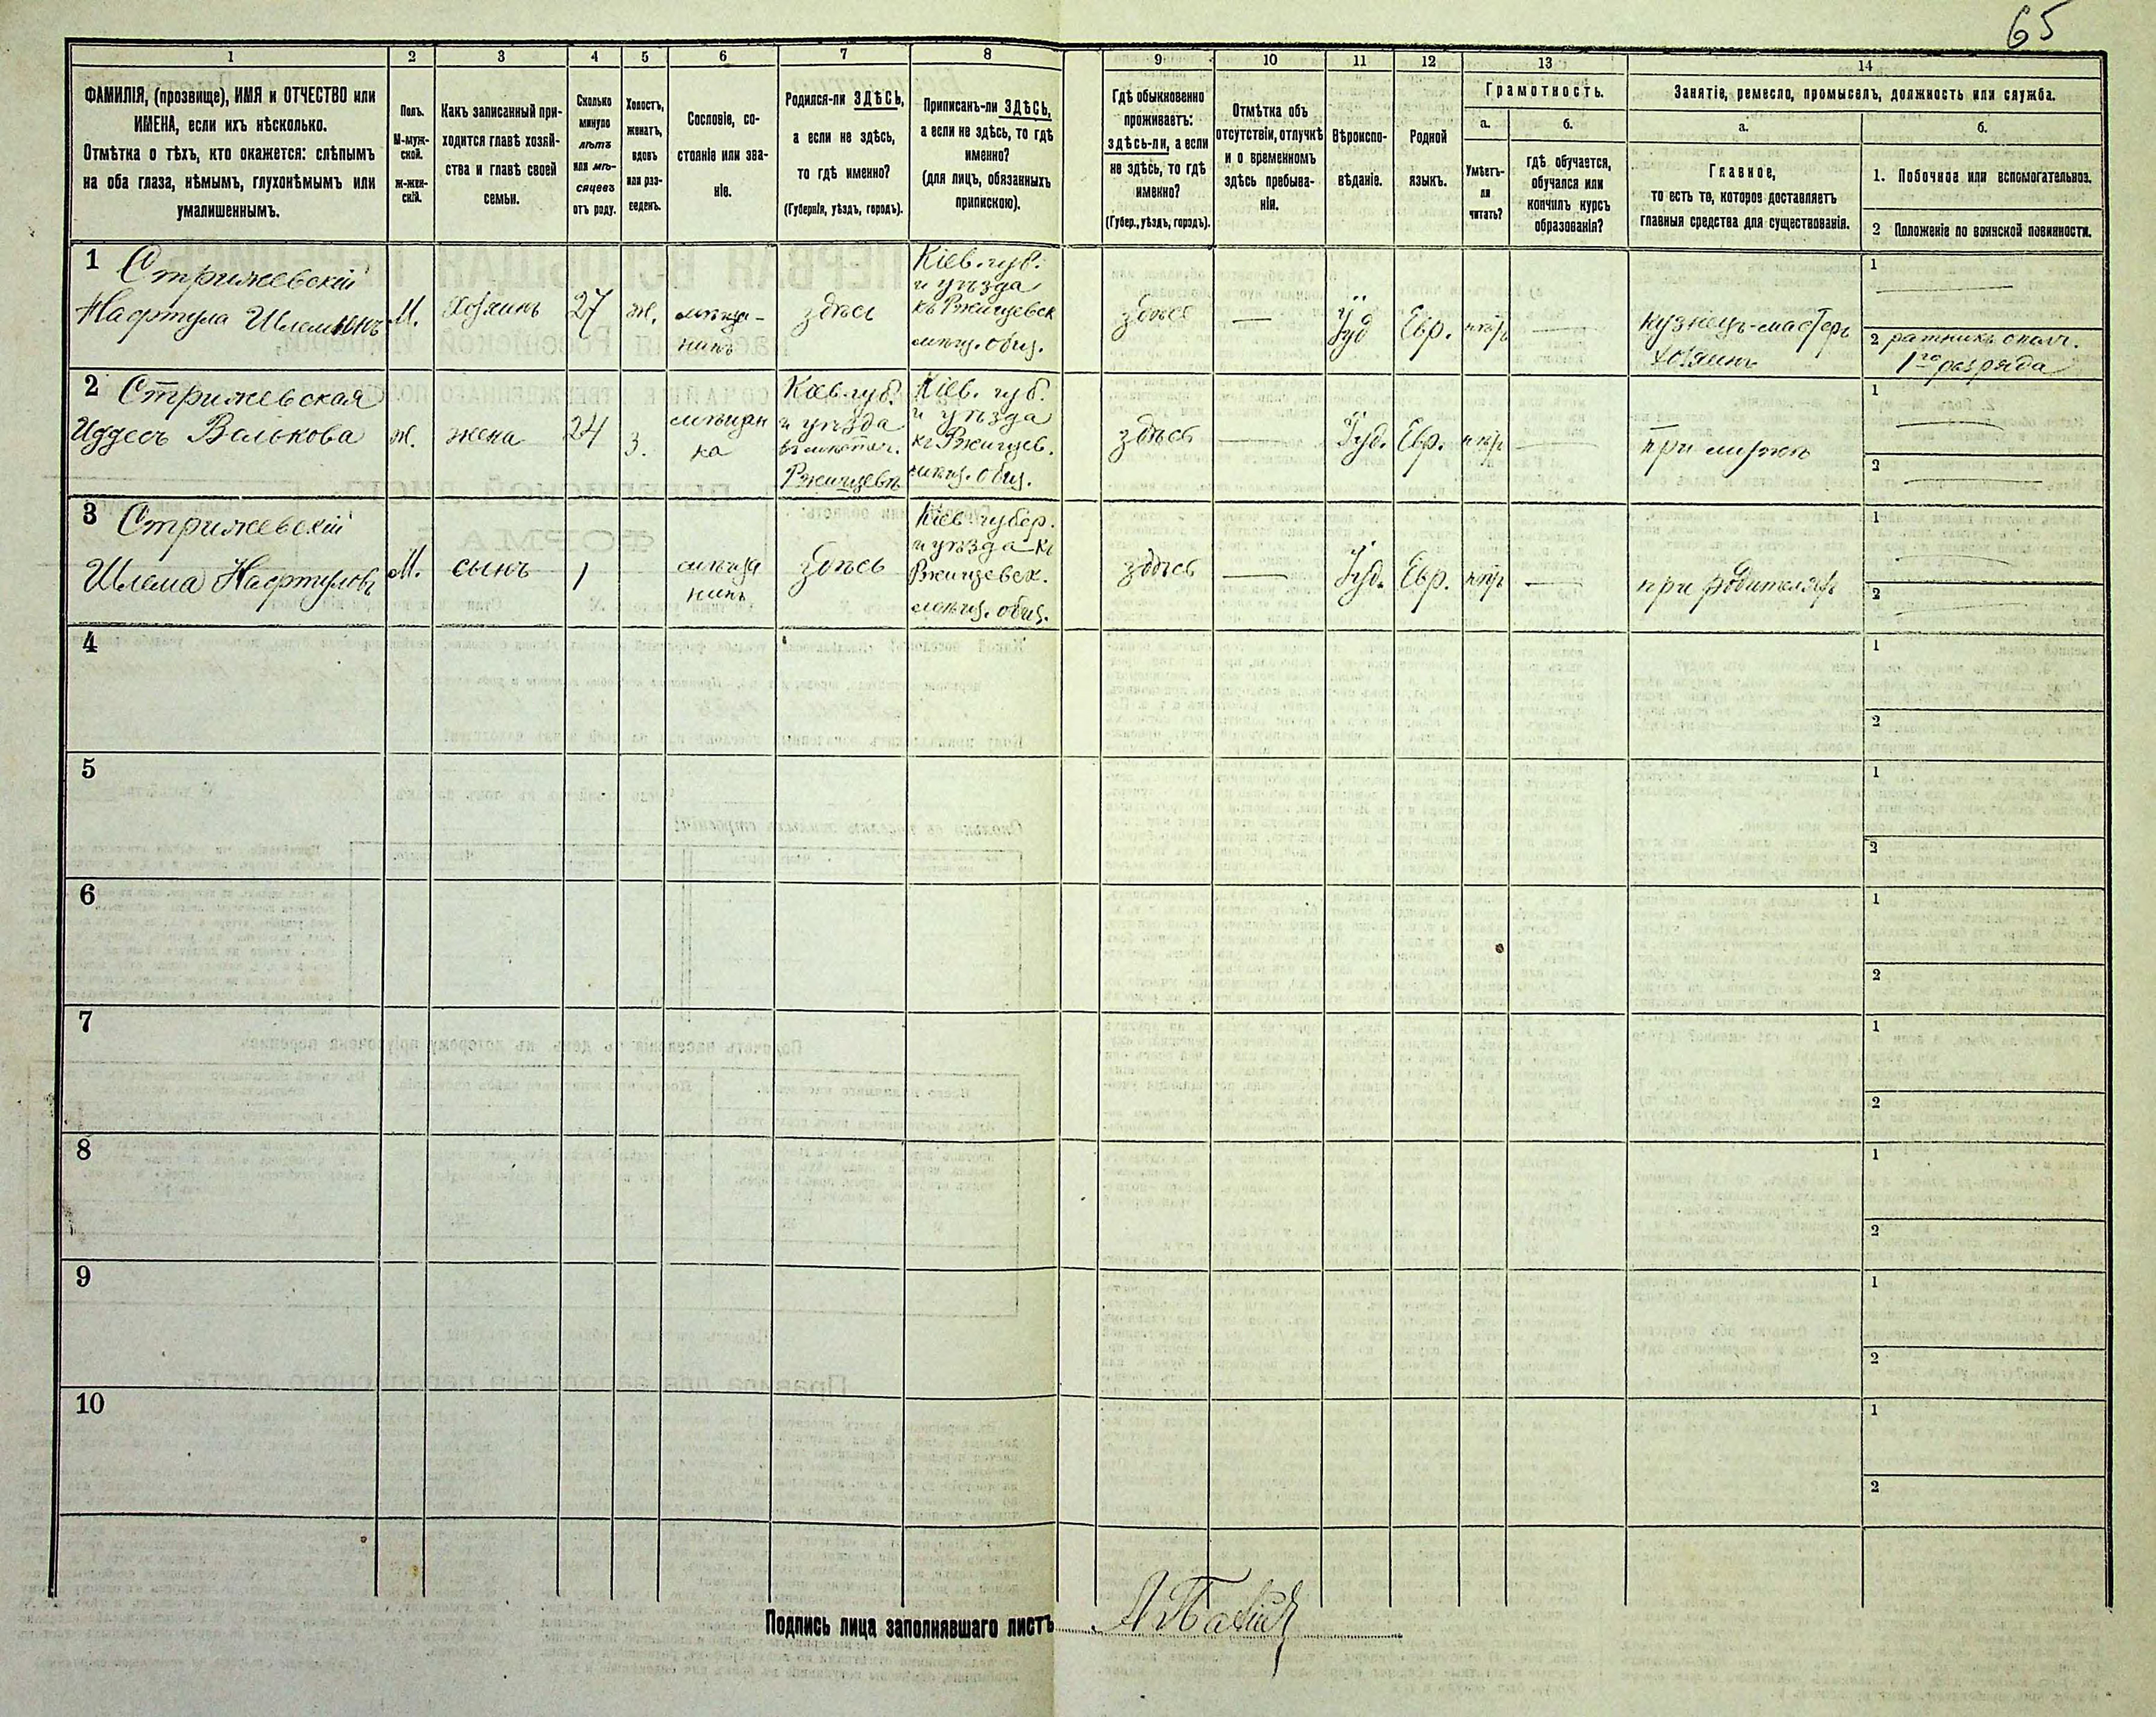 65
1 2 3 4 5 6 7 8 9 10 11 12 13 14
ФАМИЛІЯ, (прозвище), ИМЯ и ОТЧЕСТВО или
ИМЕНА, если ихъ нѣсколько.
Отмѣтка о тѣхъ, кто окажется: слѣпымъ
на оба глаза, нѣмымъ, глухонѣмымъ или
умалишеннымъ.
Полъ.
М-муж-
ской.
Ж-жен-
скій.
Какъ записанный при-
ходится главѣ хозяй-
ства и главѣ своей
семьи.
Сколько
минуло
лѣтъ
или мѣ-
сяцевъ
отъ роду.
Холостъ,
женатъ,
вдовъ
или раз-
веденъ.
Сословіе, со-
стояніе или зва-
ніе.
Родился-ли ЗДѢСЬ,
а если не здѣсь,
то гдѣ именно?
(Губернія, уѣздъ, городъ).
Приписанъ-ли ЗДѢСЬ,
а если не здѣсь, то гдѣ
именно?
(для лицъ, обязанныхъ
припискою).
Гдѣ обыкновенно
проживаетъ:
здѣсь-ли, а если
не здѣсь, то гдѣ
именно?
(Губер., уѣздъ, городъ).
Отмѣтка объ
отсутствіи, отлучкѣ
и о временномъ
здѣсь пребыва-
ніи.
Вѣроиспо-
вѣданіе.
Родной
языкъ.
Грамотность.
а.
Умѣетъ-
ли
читать?
б.
гдѣ обучается,
обучался или
кончилъ курсъ
образованія?
Занятіе, ремесло, промыселъ, должность или служба.
а.
Главное,
то есть то, которое доставляетъ
главныя средства для существованія.
б.
1. Побочное или вспомогательное.
2 Положеніе по воинской повинности.
1 Стрижевскій
Нафтула Шлемовичъ
М.
Хозяинъ
27
ж.
мѣща-
нинъ
здѣсь
Кіев. губ.
и уѣзда
къ Ржищевск
мѣщ. общ.
здѣсь
—
Іуд
Евр.
нѣтъ
—
кузнецъ-мастеръ
хозяинъ
1 —
2 ратникъ опол.
1го разряда
2 Стрижевская
Иддесъ Волькова
ж.
жена
24
з.
мѣщан
ка
Кіев. губ.
и уѣзда
въ мѣстеч.
Ржищевѣ
Кіев. губ.
и уѣзда
къ Ржищев.
мѣщ. общ.
здѣсь
—
Іуд.
Евр.
нѣтъ
—
при мужѣ
1 —
2 —
3 Стрижевскій
Шлема Нафтуловъ
М.
сынъ
1
мѣща
нинъ
здѣсь
Кіев. губер.
и уѣзда къ
Ржищевск.
мѣщ. общ.
здѣсь
—
Іуд.
Евр.
нѣтъ
—
при родителяхъ
1 —
2 —
4
1
2
5
1
2
6
1
2
7
1
2
8
1
2
9
1
2
10
1
2
Подпись лица заполнявшаго листъ